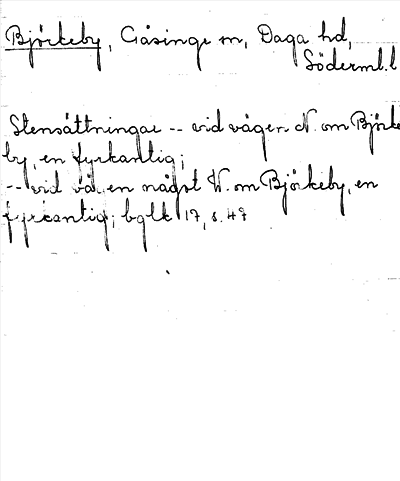 Björkeby, Gåsinge sn, Daga hd,
Söderml. l
Stensättningar -- vid vägen N. om Björke
by, en fyrkantig;
-- vid vägen något N. om Björkeby, en
fyrkantig; bglk 17, s. 47